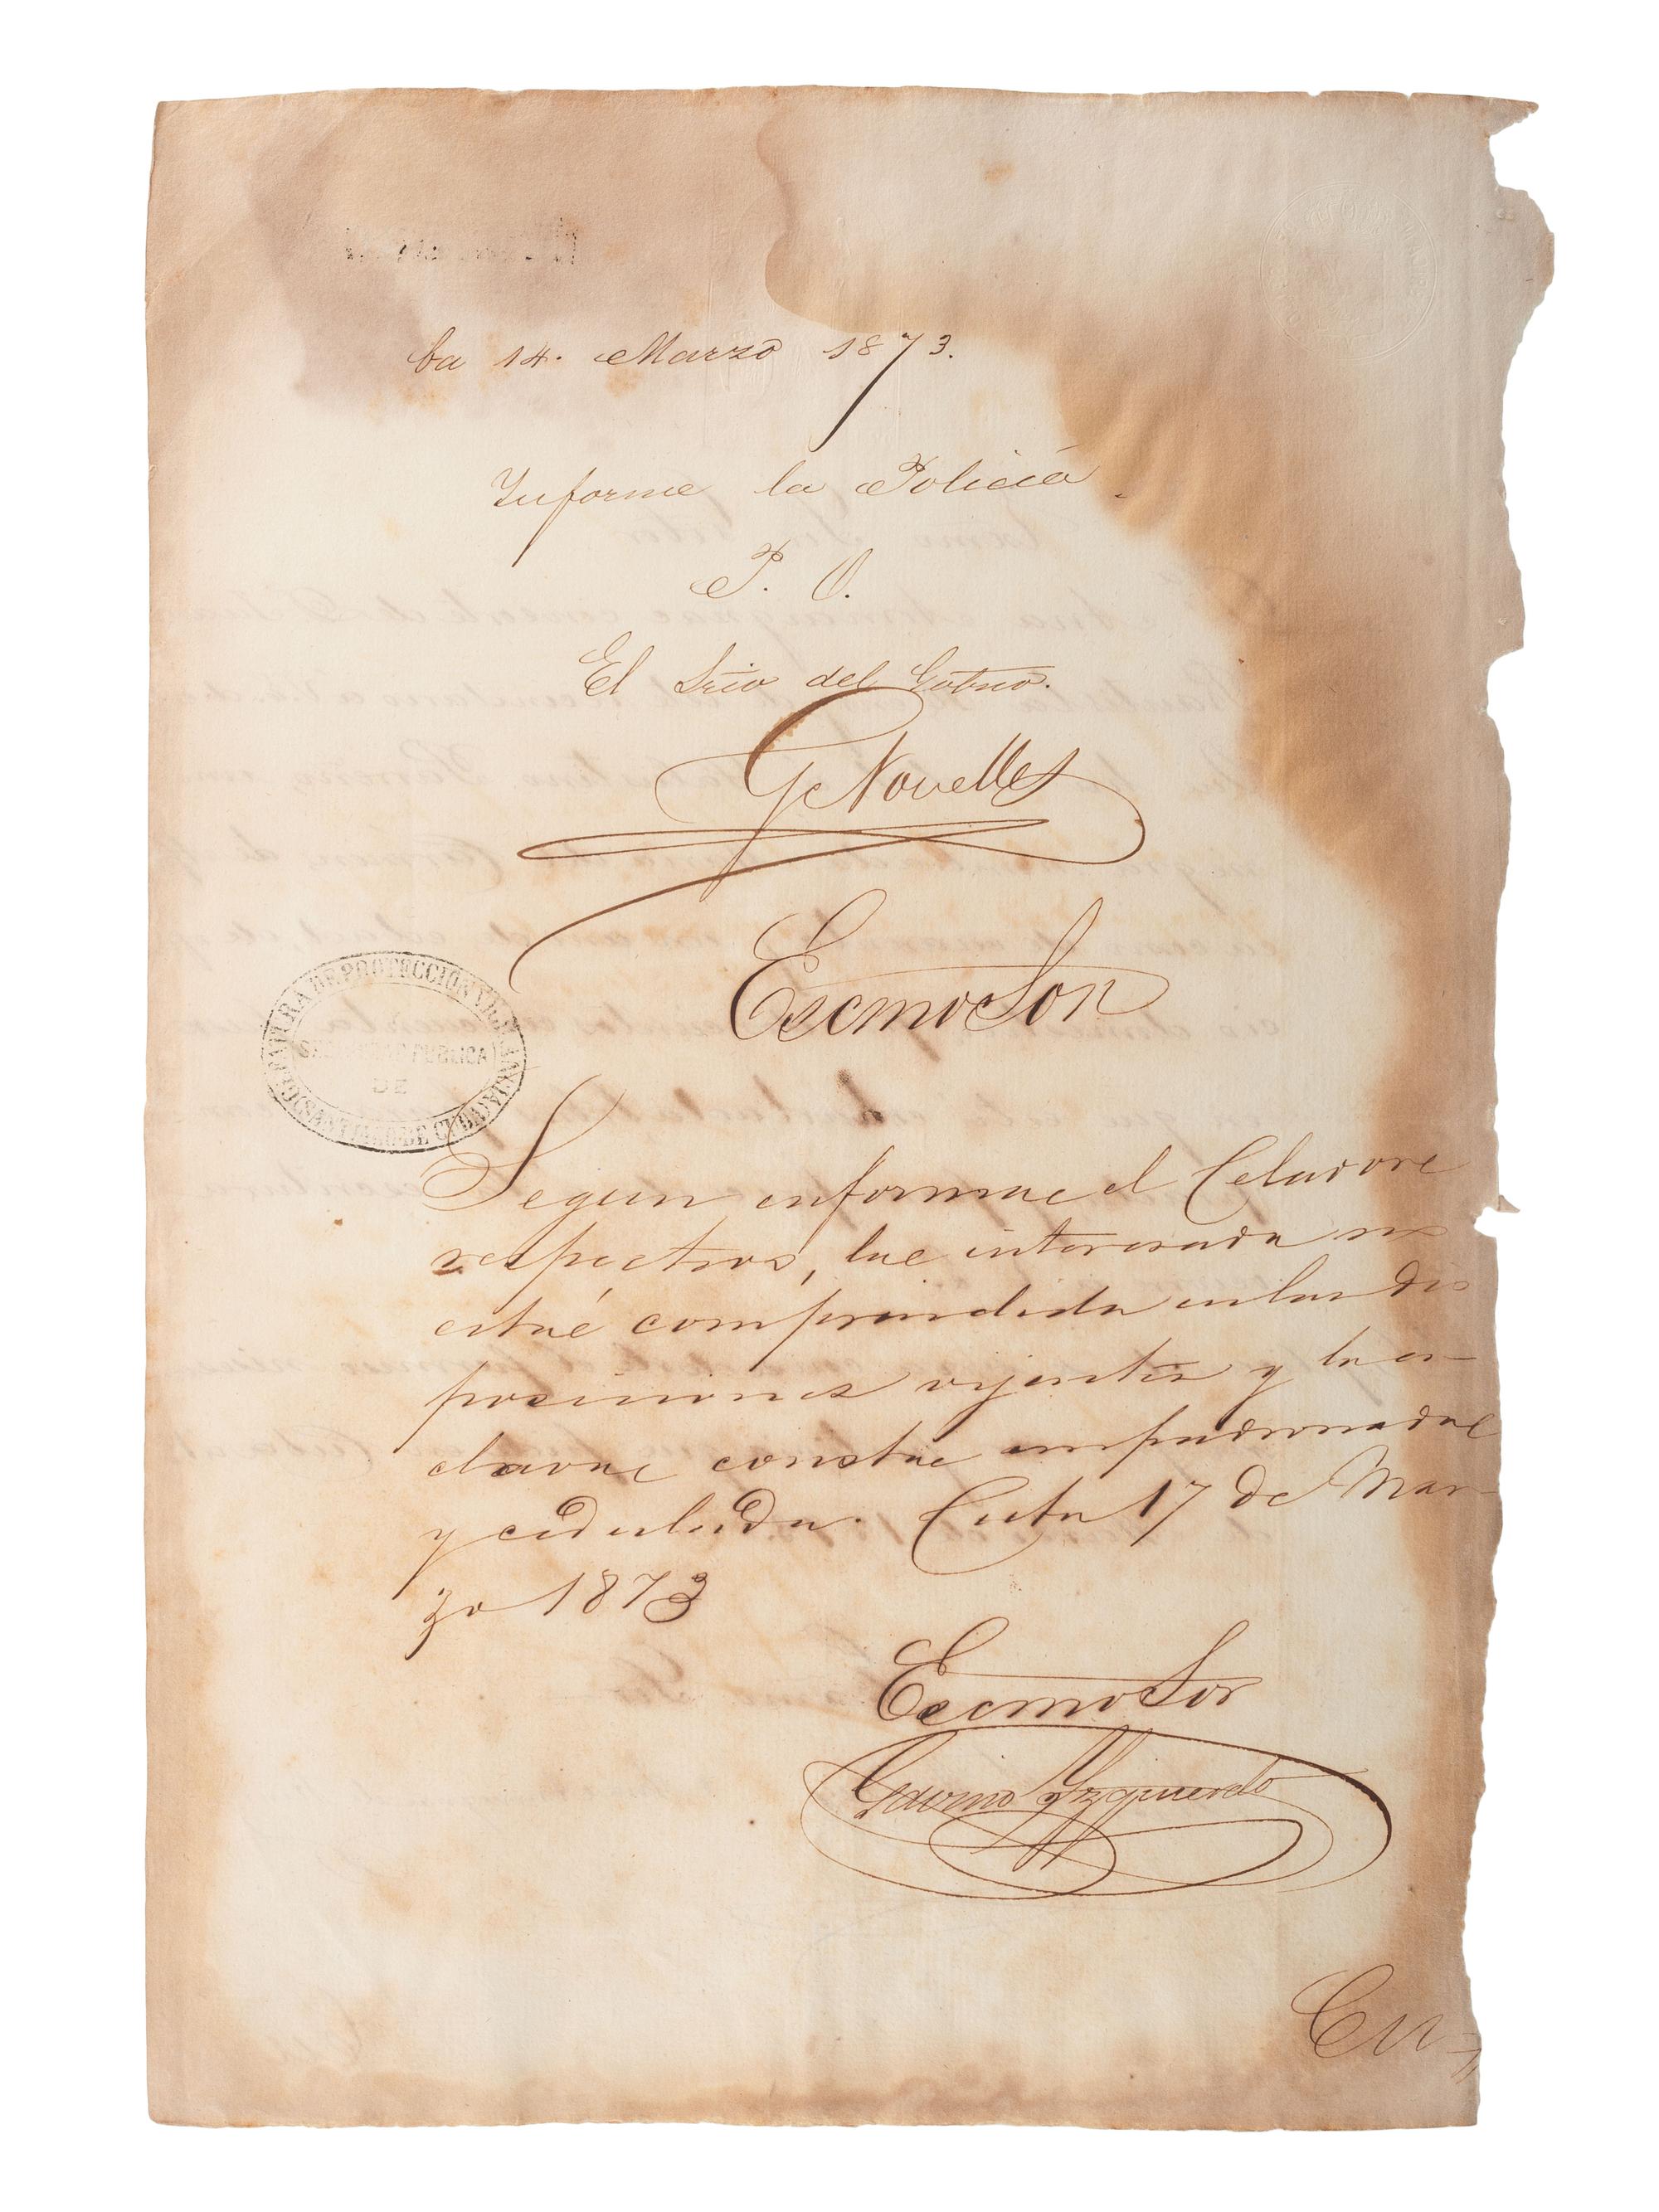 ba 14. Marzo 1873.
Informe la Policía.
P. O.
El Srio del Gobno.
G Novelles
Escmo Sor
JEFATURA DE PROTECCION Y VIGILANCIA
SEGURIDAD PUBLICA
DE
SANTIAGO DE CUBA
Segun informa el Celador
respectivo, la interesada no
está comprendida en las dis
posiciones vijentes y la es-
clava consta empadronada
y cedulada. Cuba 17 de Mar-
zo 1873
Escmo Sor
Izquierdo
Cu=